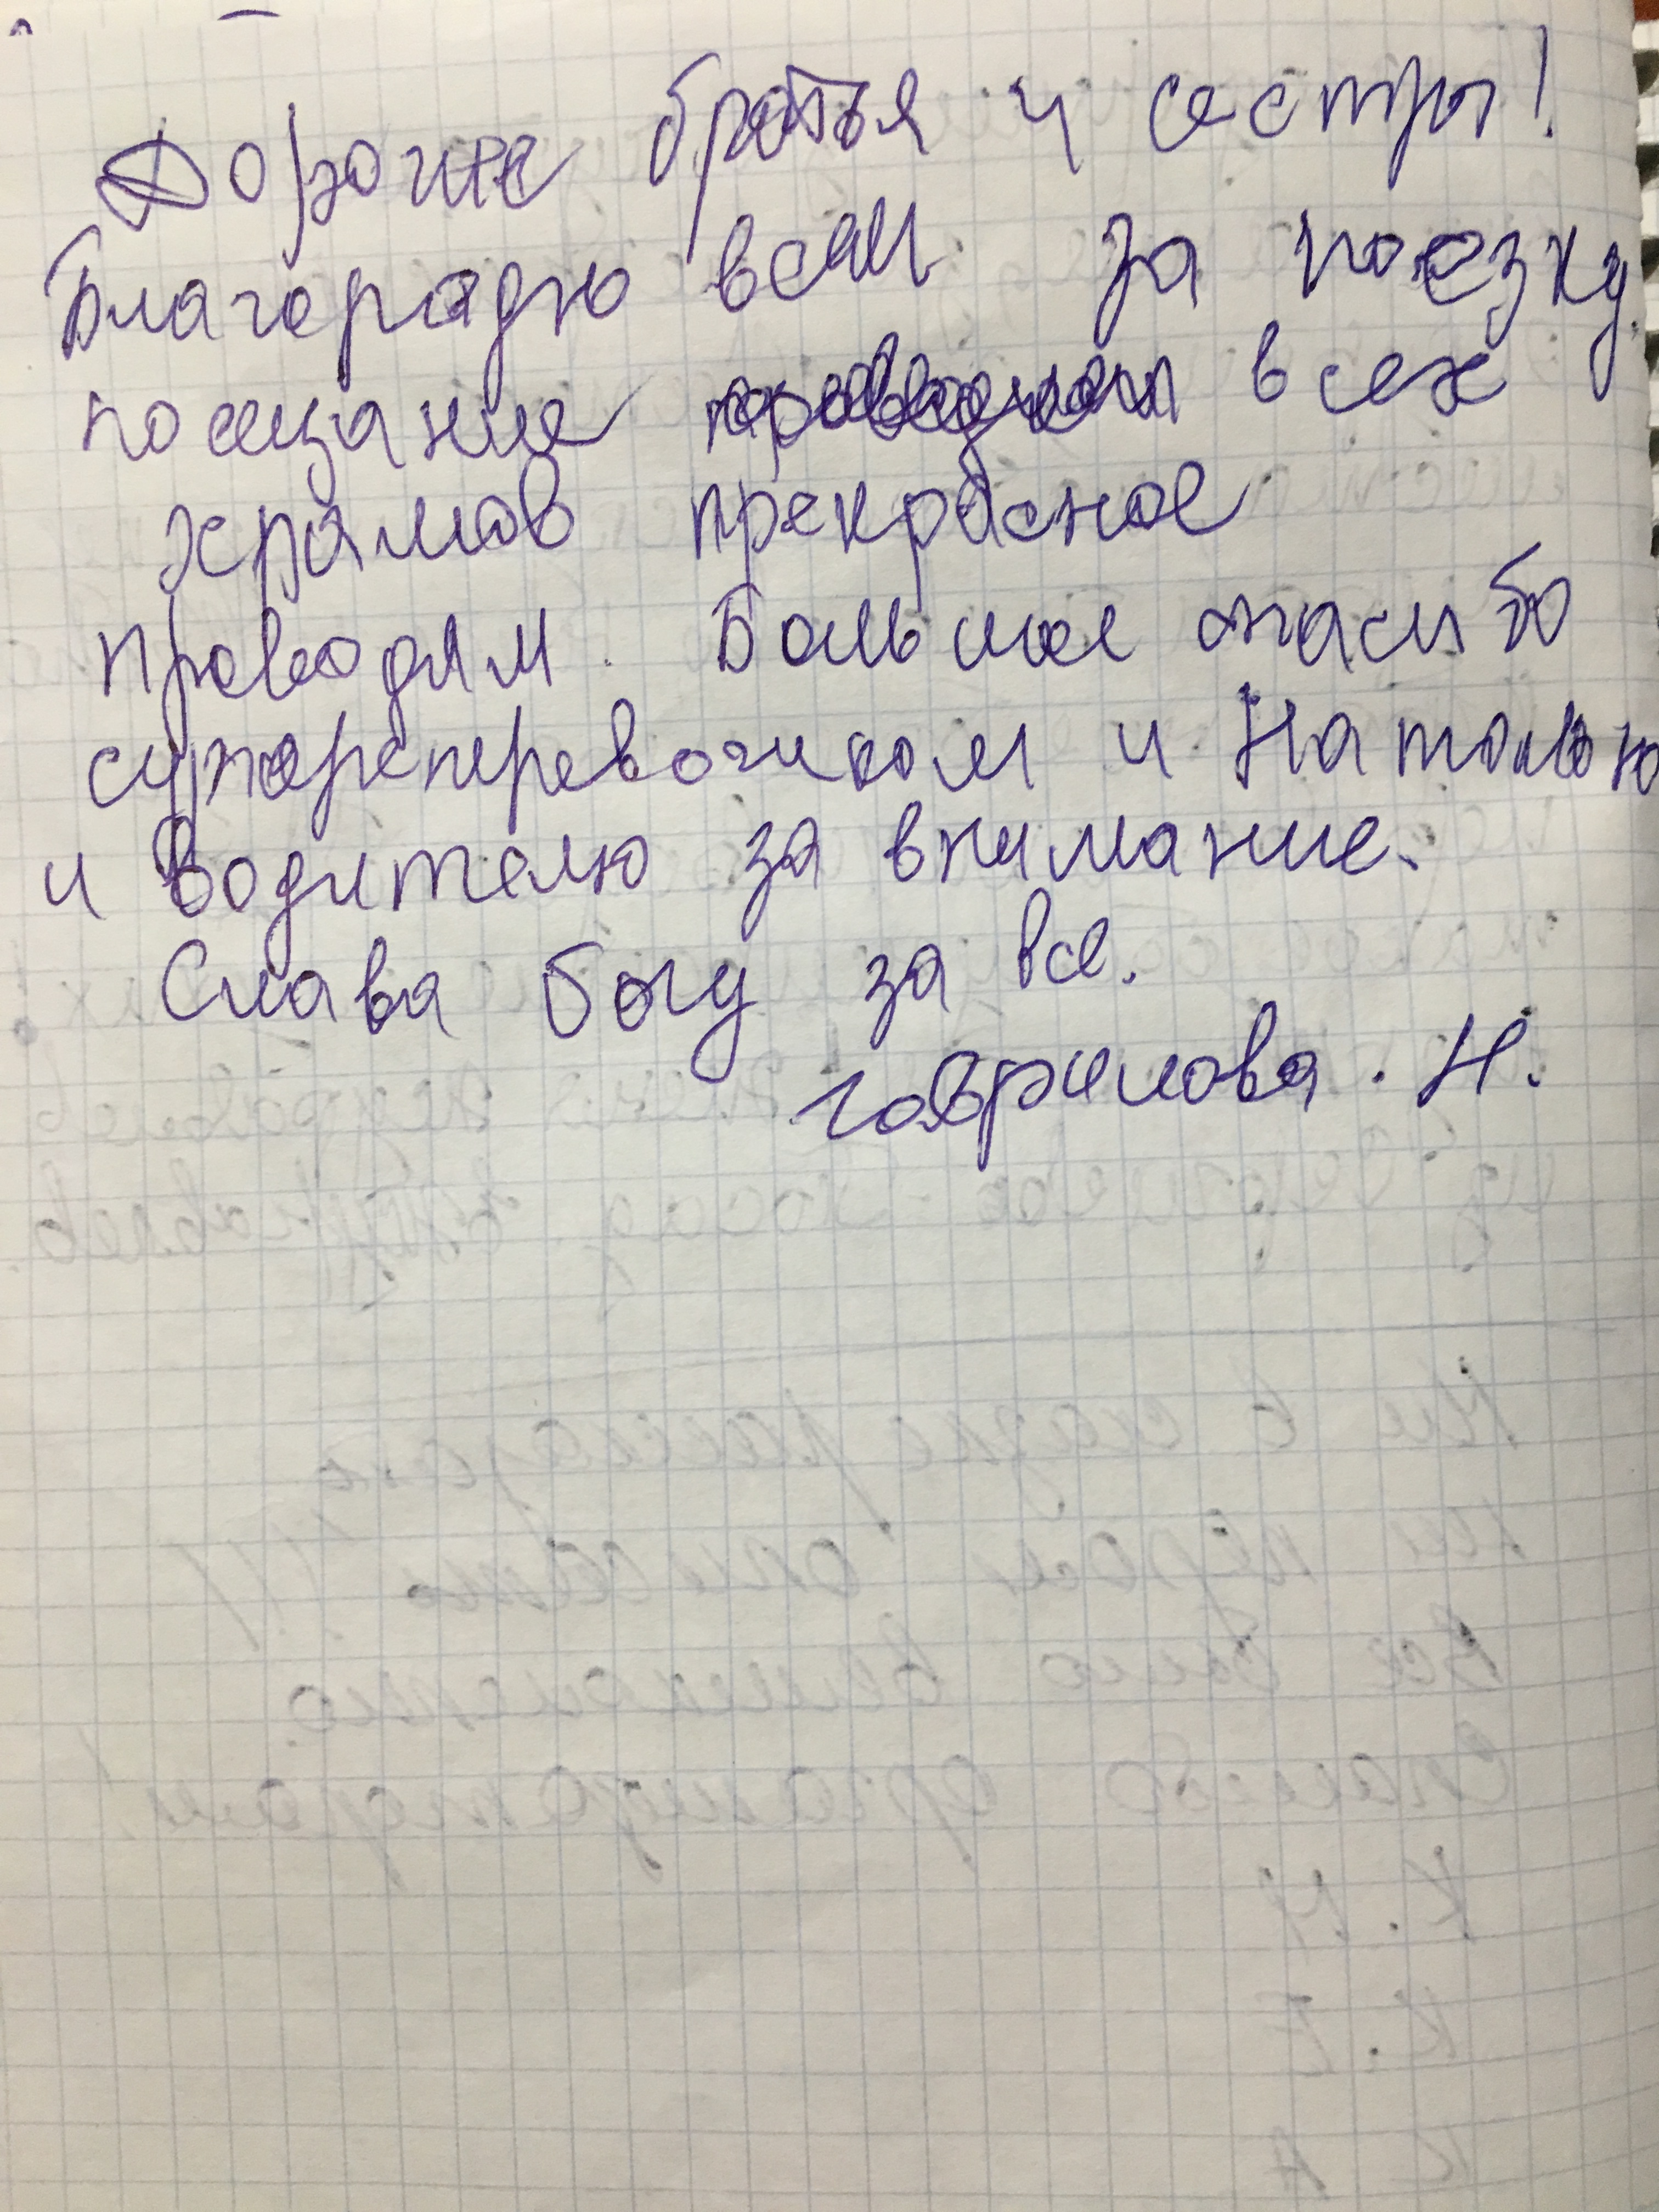 Дорогие братья и сестры!
Благородю всем за поезку
посещание всех
храмов прекрасное
проводям. Большое спасибо
суперпереводчиком и Натолью
и водителю за внимание.
Слава богу за все.
Гаврилова. Н.